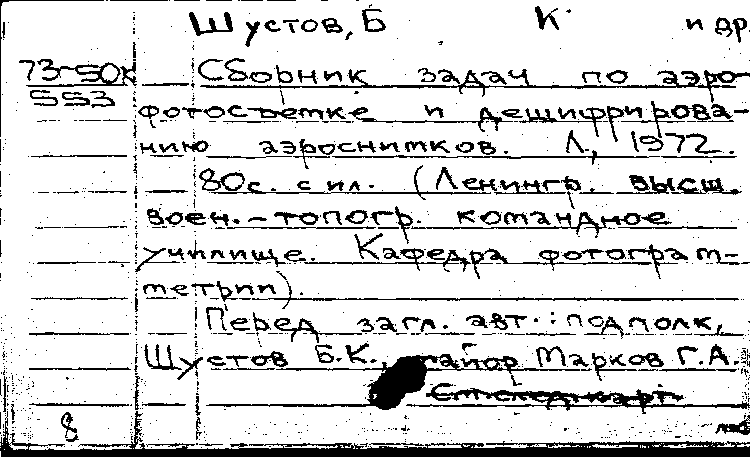 Шустов, Б К. и др
73-50к Сборник задач по аэро-
553 фотосъемке и дешифрирова-
нию аэроснимков. Л., 1972.
80с. с ил. (Ленингр. высш.
воен.-топогр. командное
училище. Кафедра фотограм-
метрии).
Перед загл. авт.: подполк,
Шустов Б.К., майор Марков Г.А.
См след. карт
8